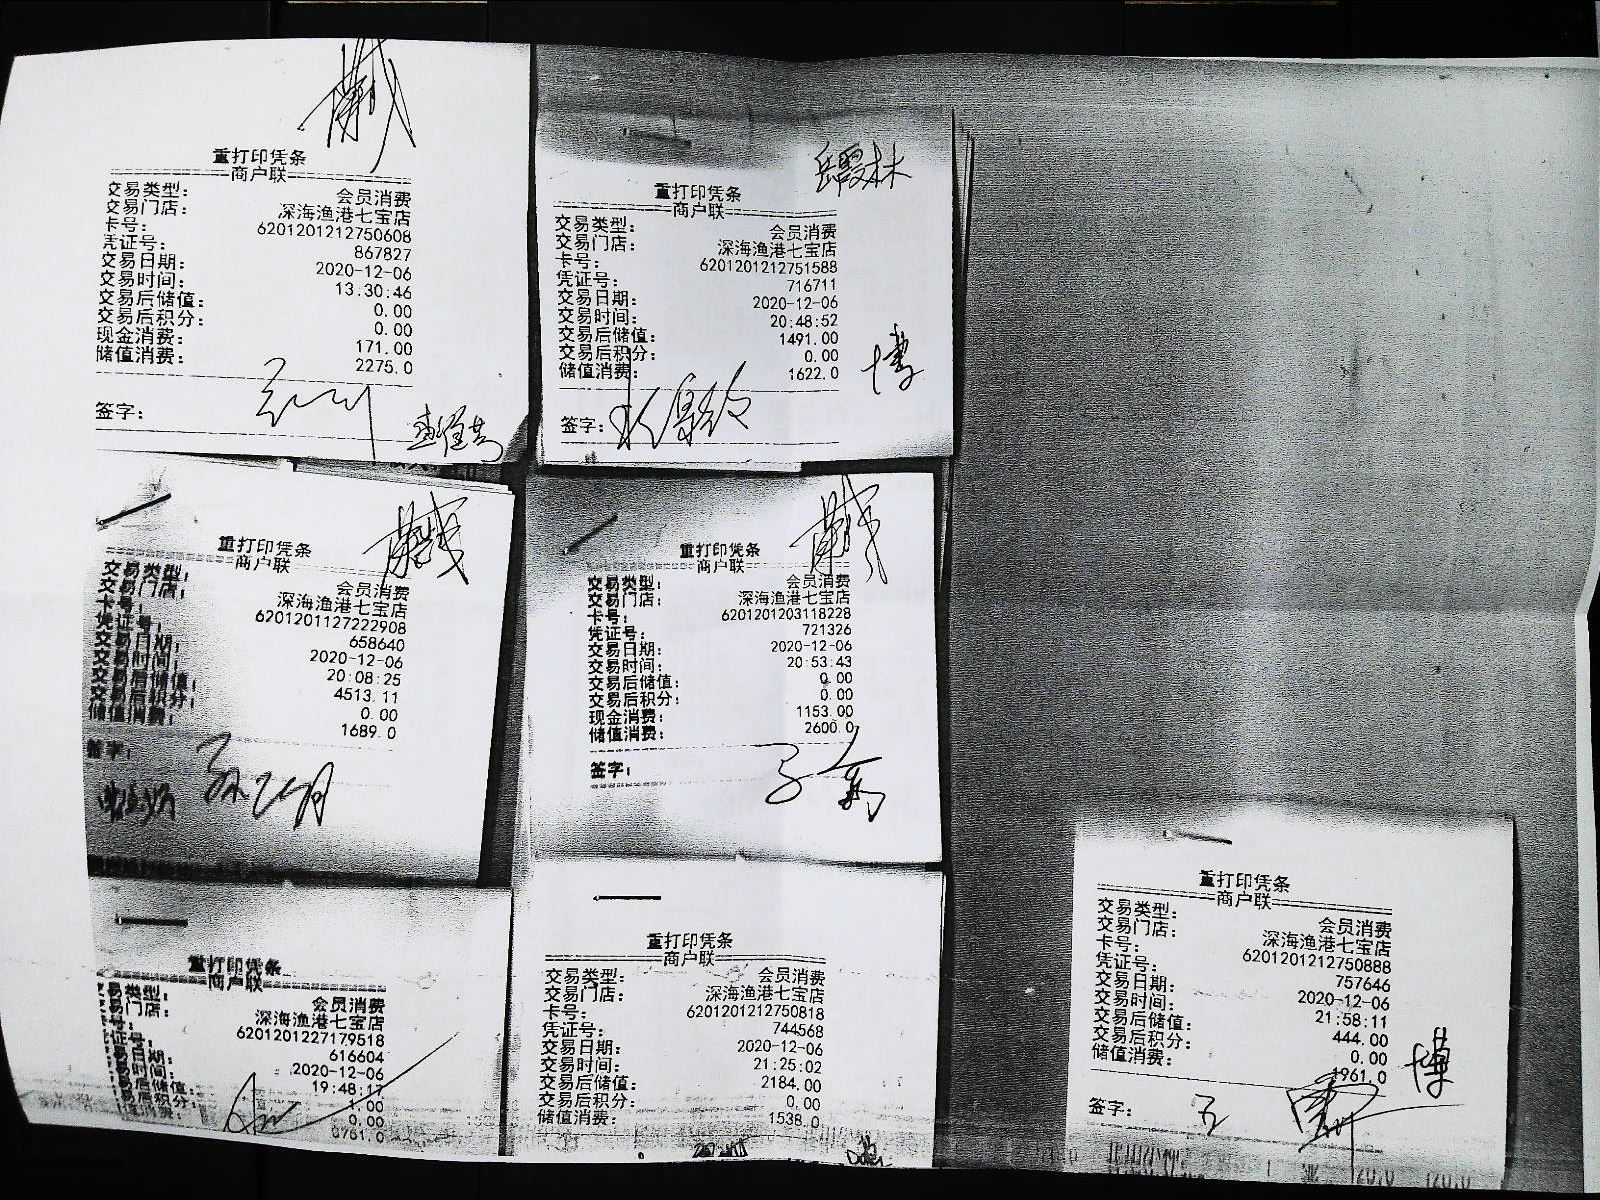 重打印凭条
商户联
交易类型： 会员消费
交易门店： 深海渔港七宝店
卡号： 6201201212750608
凭证号： 867827
交易日期： 2020-12-06
交易时间： 13:30:46
交易后储值： 0.00
交易后积分： 0.00
现金消费： 171.00
储值消费： 2275.0
签字：
岳霞林
重打印凭条
商户联
交易类型： 会员消费
交易门店： 深海渔港七宝店
卡号： 6201201212751588
凭证号： 716711
交易日期： 2020-12-06
交易时间： 20:48:52
交易后储值： 1491.00
交易后积分： 0.00
储值消费： 1622.0
博
签字：
重打印凭条
商户联
交易类型： 会员消费
交易门店： 深海渔港七宝店
卡号： 6201201127222908
凭证号： 658640
交易日期： 2020-12-06
交易时间： 20:08:25
交易后储值： 4513.11
交易后积分： 0.00
储值消费： 1689.0
签字：
重打印凭条
商户联
交易类型： 会员消费
交易门店： 深海渔港七宝店
卡号： 6201201203118228
凭证号： 721326
交易日期： 2020-12-06
交易时间： 20:53:43
交易后储值： 0.00
交易后积分： 0.00
现金消费： 1153.00
储值消费： 2600.0
签字：
重打印凭条
商户联
易类型： 会员消费
易门店： 深海渔港七宝店
号： 6201201227179518
证号： 616604
易日期： 2020-12-06
易时间： 19:48:17
易后储值： 1.00
易后积分： 0.00
值消费：
重打印凭条
商户联
交易类型： 会员消费
交易门店： 深海渔港七宝店
卡号： 6201201212750818
凭证号： 744568
交易日期： 2020-12-06
交易时间： 21:25:02
交易后储值： 2184.00
交易后积分： 0.00
储值消费： 1538.0
重打印凭条
商户联
交易类型： 会员消费
交易门店： 深海渔港七宝店
卡号： 6201201212750888
凭证号： 757646
交易日期： 2020-12-06
交易时间： 21:58:11
交易后储值： 444.00
交易后积分： 0.00
储值消费： 1961.0
博
签字：